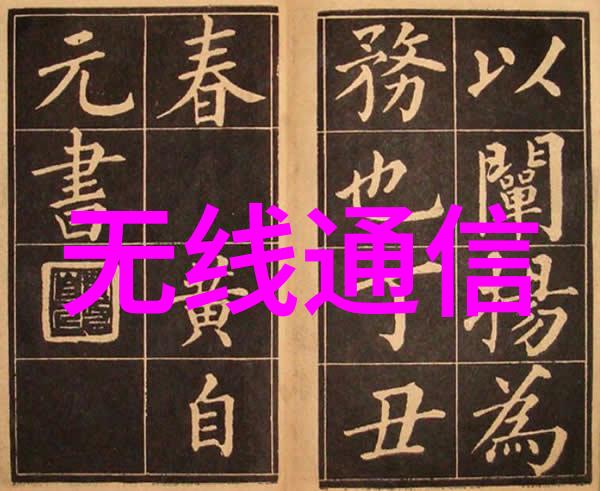 以闡揚為
務也丁丑
春黃自
元書
无线通信